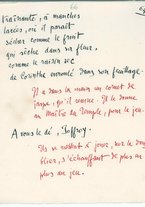 66
traînante, à manches
larges, où il paraît
séché comme le fruit
qui sèche dans sa fleur,
comme le raisin sec
de Corinthe enroulé dans son feuillage.
Il a dans la main un cornet de
jaspe, qu'il secoue. Il le donne
au Maître du Temple, pour le jeu.
A vous le dé, Joffroy.
Ils se mettent à jouer, sur le dos
, s'échauffant de plus en
plus au jeu.